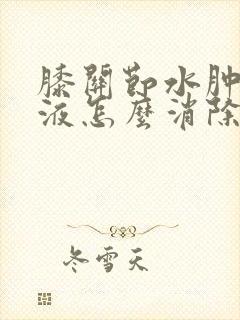 膝關節水肿
液怎麼消除
冬雪天